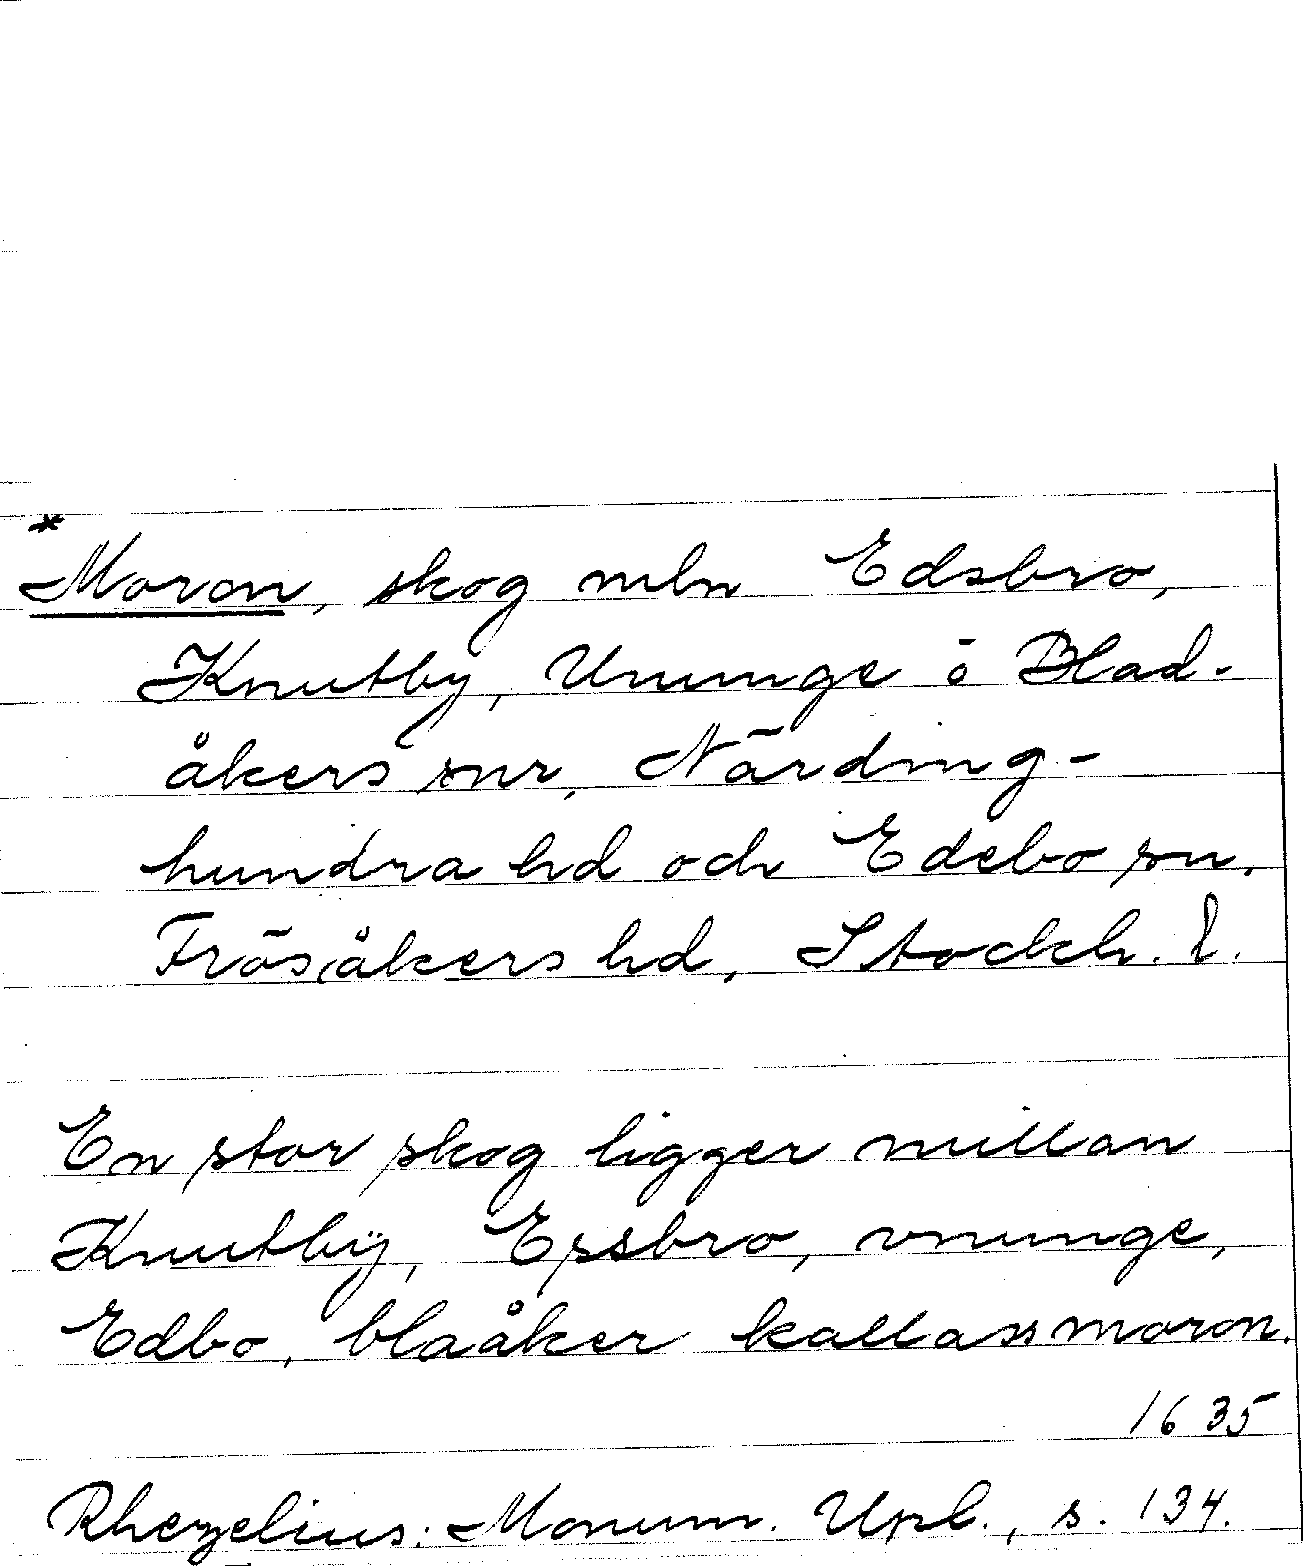 *Moron, skog mln Edsbro,
Knutby, Ununge o Blad-
åkers snr, Närding-
hundra hd och Edebo sn,
Frösåkers hd, Stockh. l.
En stor skog ligger millan
Knutbÿ, Essbro, vnunge,
Edbo, blaåker kallass moron.
1635
Rhezelius: Monum. Upl., s. 134.